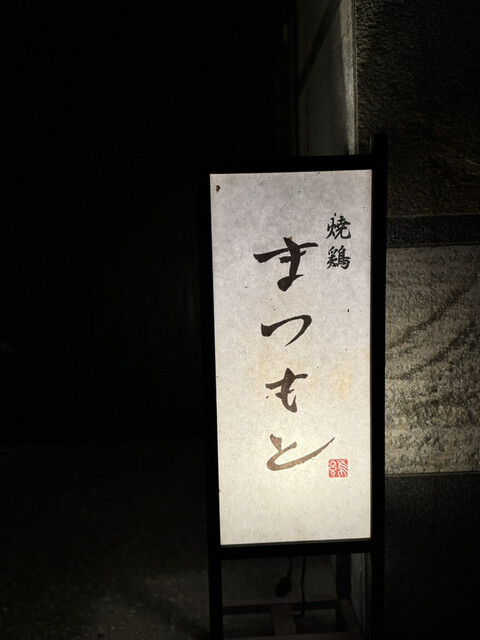 焼鶏
まつもと